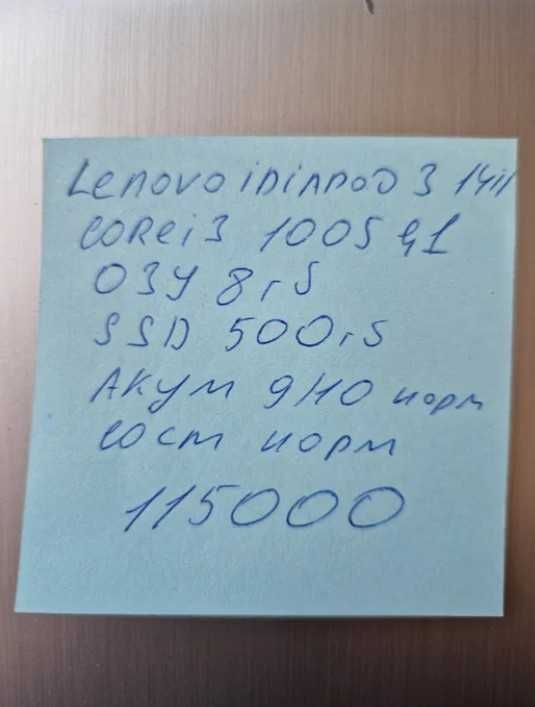 Lenovo iDiAPOD 3 14il
CORE i3 1005 G1
ОЗУ 8 гб
SSD 500 гб
АКУМ ДНО норм
сост норм
115000